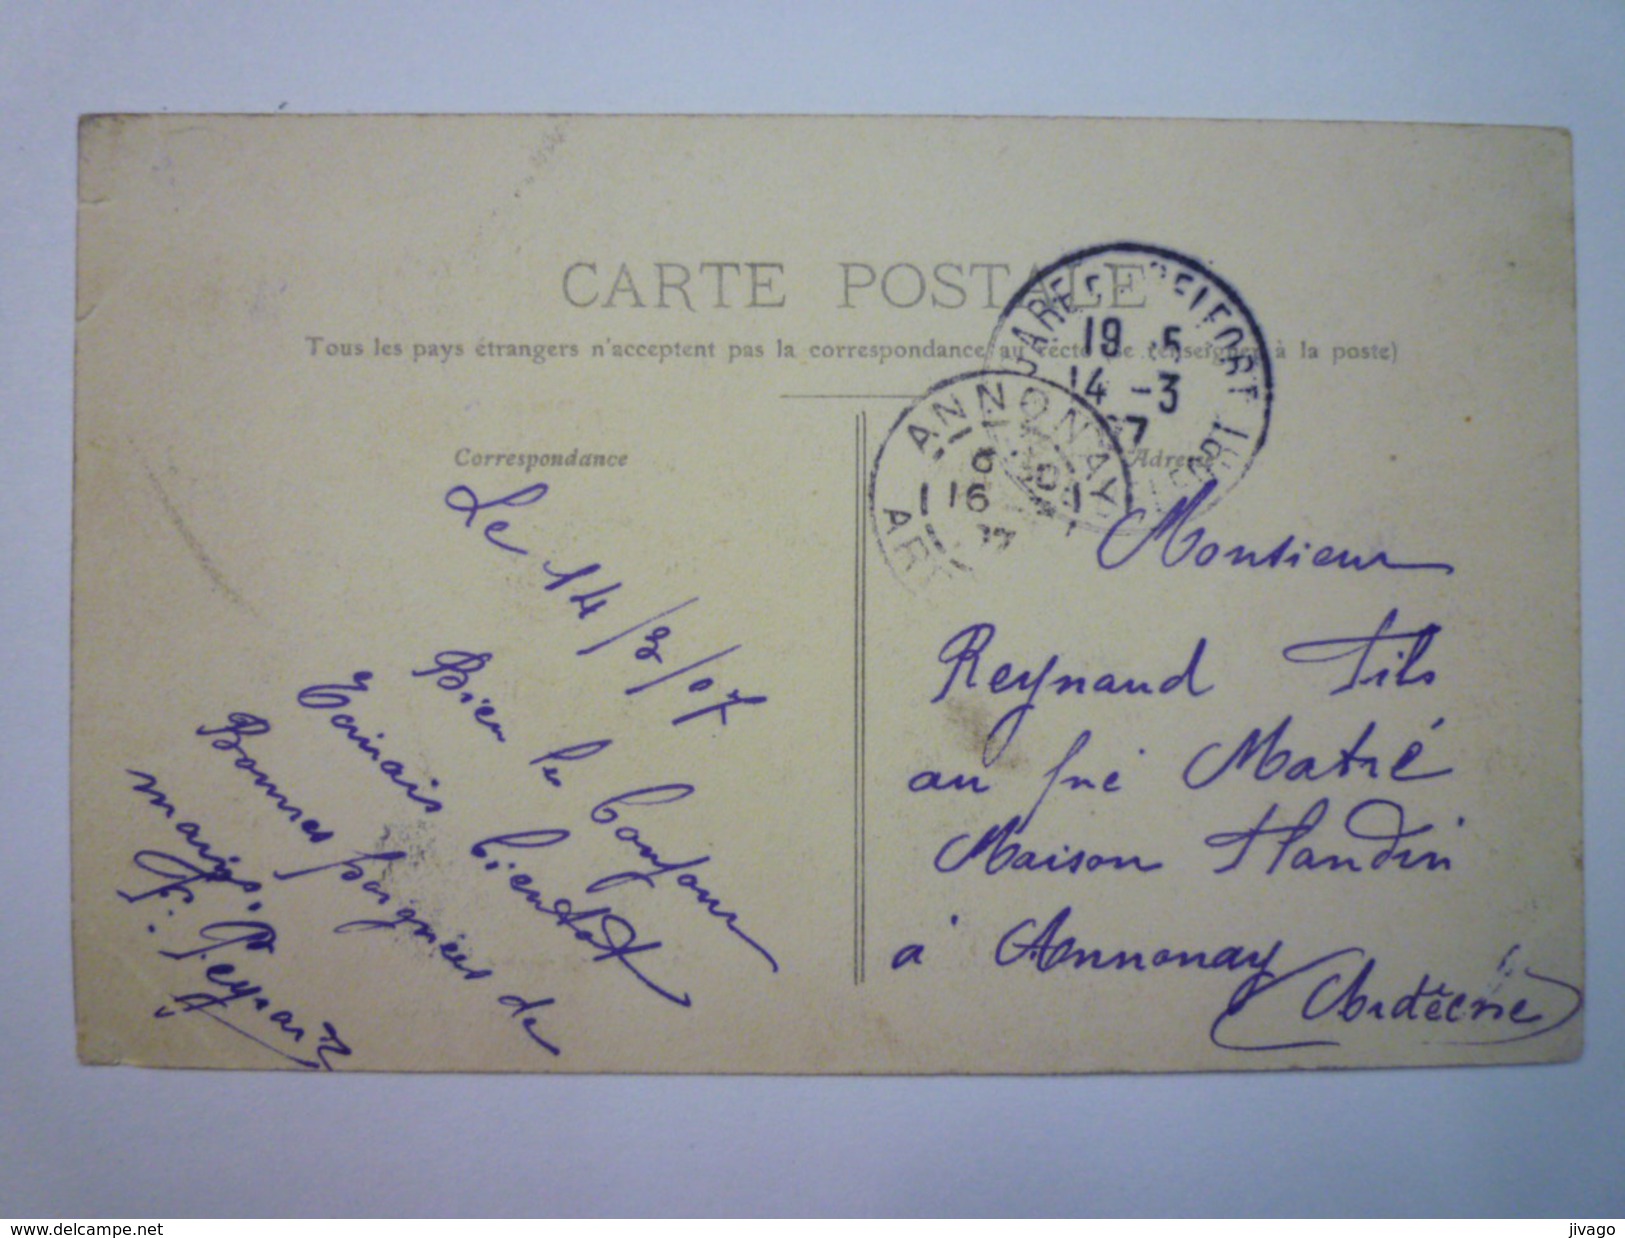 CARTE POSTALE
Tous les pays étrangers n'acceptent pas la correspondance au recto (se renseigner à la poste)
Correspondance
Le 14/3/07
Bien le bonjour
bientôt
Bonnes poignées de
mains.
F. Peysard
GARE DE BELFORT
19 5
14 -3
07
ANNONAY
16
Adresse
Monsieur
Reynaud Fils
au
Maison
à Annonay
(Ardèche)
www.delcampe.net
jivago